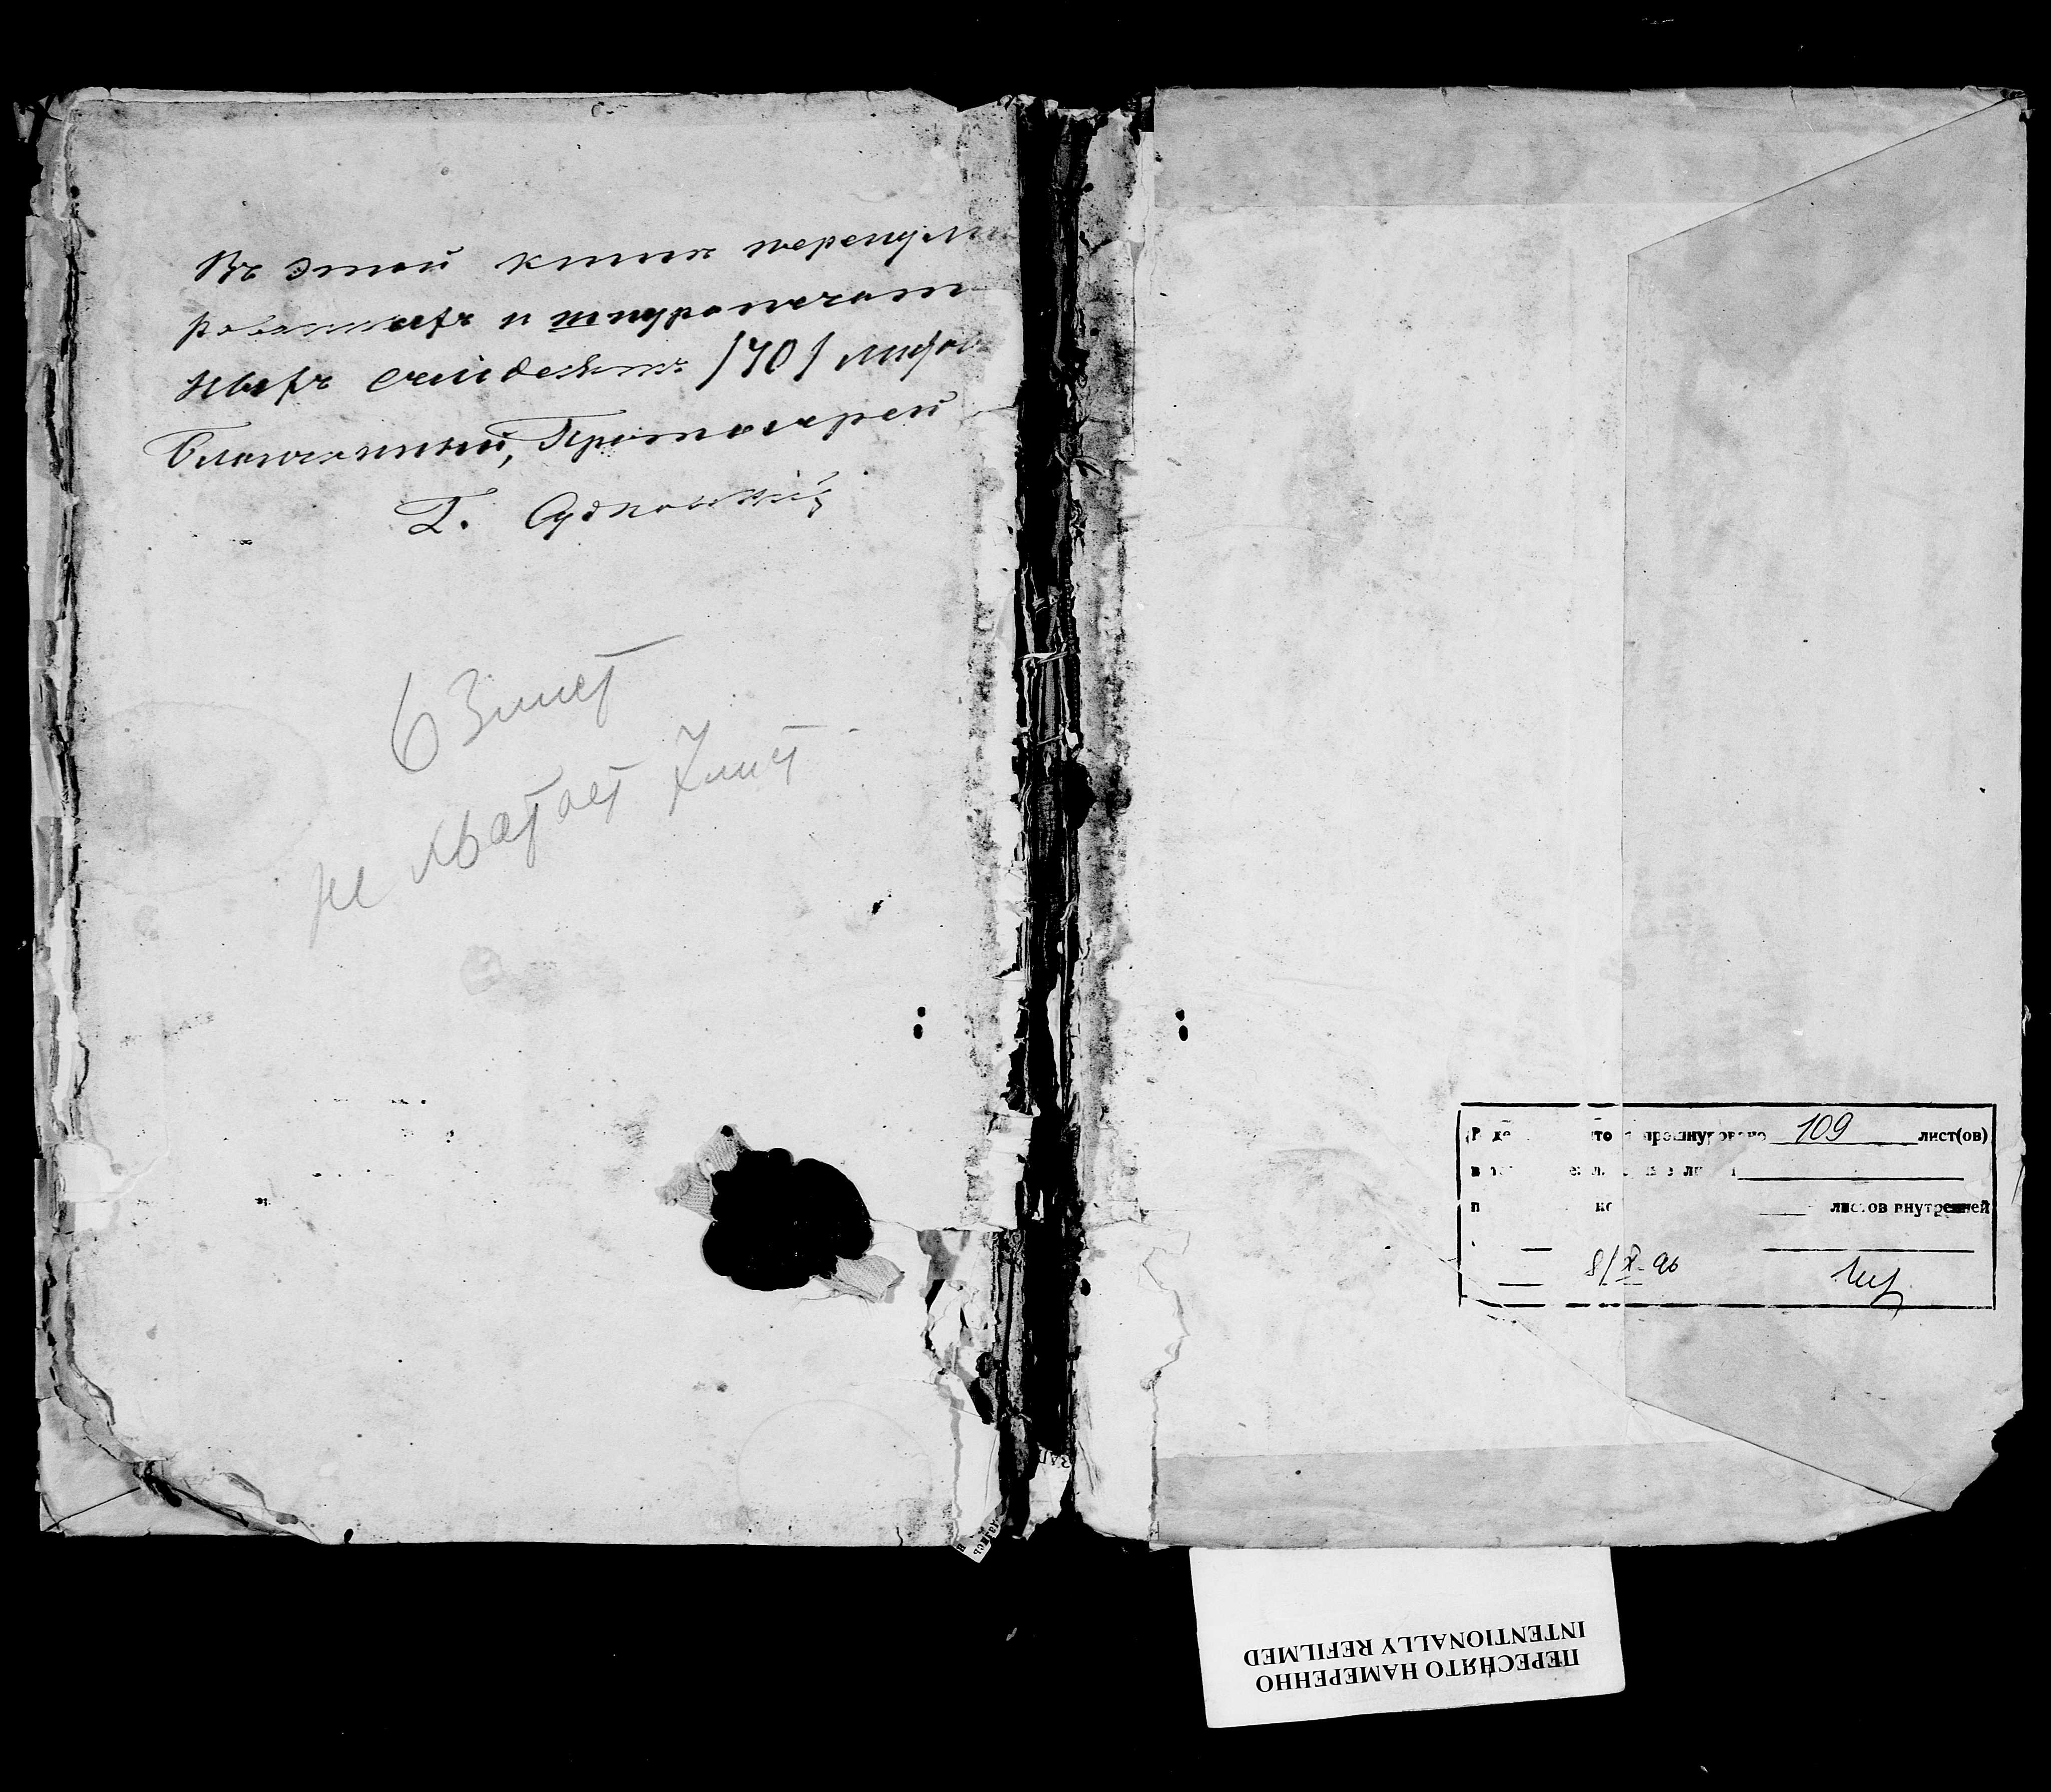 Въ этой книгѣ перенуме
рованныхъ и шнуропечат
ныхъ семьдесятъ /70/ листов
Благочинный, Протоіерей
Г.
63 лист
не хватает 7 лист
109 лист(ов)
листов внутренней
8/X-96
ПЕРЕСНЯТО НАМЕРЕННО
INTENTIONALLY REFILMED